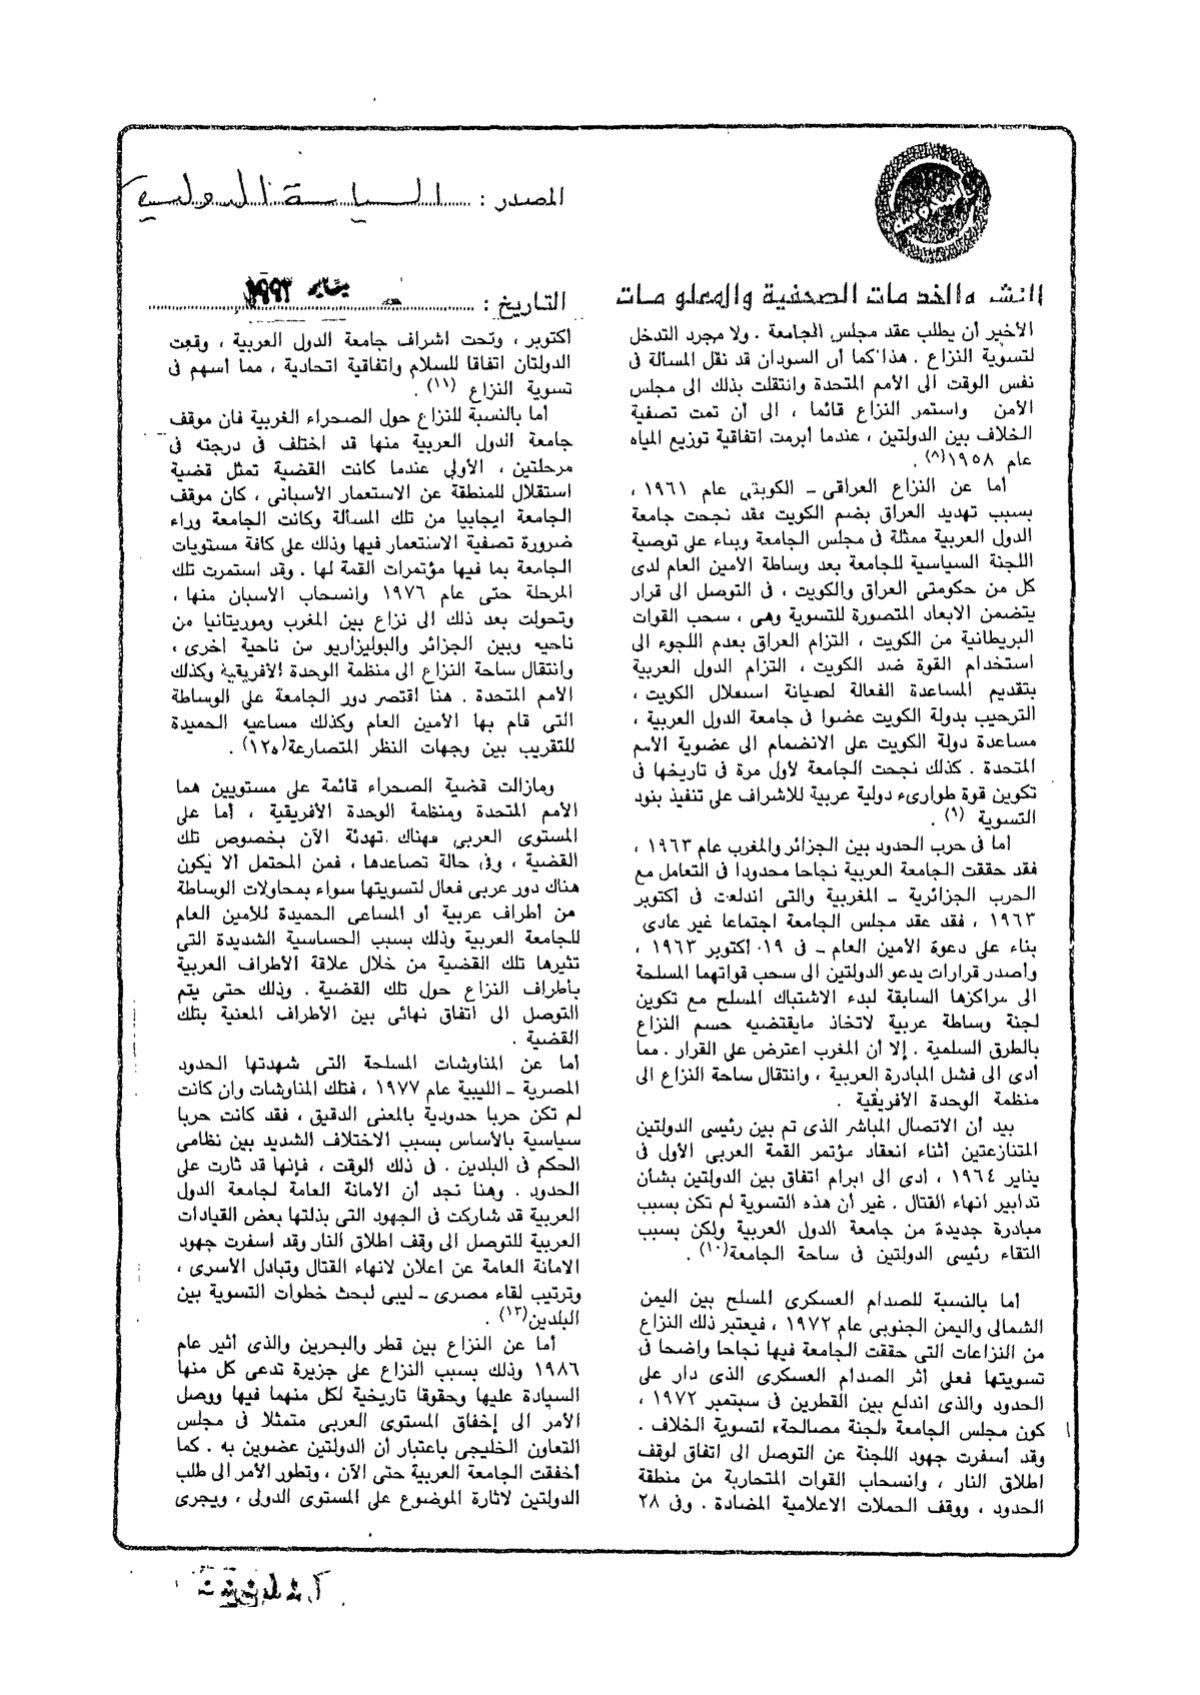 المصدر : السياسة الدولية
للنشر والخدمات الصحفية والمعلومات
التاريخ : يناير ١٩٩٣
الأخير أن يطلب عقد مجلس الجامعة . ولا مجرد التدخل
لتسوية النزاع . هذا كما أن السودان قد نقل المسألة فى
نفس الوقت الى الأمم المتحدة وانتقلت بذلك الى مجلس
الأمن واستمر النزاع قائما ، الى أن تمت تصفية
الخلاف بين الدولتين ، عندما أبرمت اتفاقية توزيع المياه
عام ١٩٥٨(٨) .
أما عن النزاع العراقى ــ الكويتى عام ١٩٦١ ،
بسبب تهديد العراق بضم الكويت فقد نجحت جامعة
الدول العربية ممثلة فى مجلس الجامعة وبناء على توصية
اللجنة السياسية للجامعة بعد وساطة الأمين العام لدى
كل من حكومتى العراق والكويت ، فى التوصل الى قرار
يتضمن الابعاد المتصورة للتسوية وهى ، سحب القوات
البريطانية من الكويت ، التزام العراق بعدم اللجوء الى
استخدام القوة ضد الكويت ، التزام الدول العربية
بتقديم المساعدة الفعالة لصيانة استقلال الكويت ،
الترحيب بدولة الكويت عضوا فى جامعة الدول العربية ،
مساعدة دولة الكويت على الانضمام الى عضوية الأمم
المتحدة . كذلك نجحت الجامعة لأول مرة فى تاريخها فى
تكوين قوة طوارىء دولية عربية للاشراف على تنفيذ بنود
التسوية (٩) .
أما فى حرب الحدود بين الجزائر والمغرب عام ١٩٦٣ ،
فقد حققت الجامعة العربية نجاحا محدودا فى التعامل مع
الحرب الجزائرية ــ المغربية والتى اندلعت فى أكتوبر
١٩٦٣ ، فقد عقد مجلس الجامعة اجتماعا غير عادى
بناء على دعوة الأمين العام ــ فى ١٩ أكتوبر ١٩٦٣ ،
وأصدر قرارات يدعو الدولتين الى سحب قواتهما المسلحة
الى مراكزها السابقة لبدء الاشتباك المسلح مع تكوين
لجنة وساطة عربية لاتخاذ مايقتضيه حسم النزاع
بالطرق السلمية . إلا أن المغرب اعترض على القرار . مما
أدى الى فشل المبادرة العربية ، وانتقال ساحة النزاع الى
منظمة الوحدة الأفريقية .
بيد أن الاتصال المباشر الذى تم بين رئيسى الدولتين
المتنازعتين أثناء انعقاد مؤتمر القمة العربى الأول فى
يناير ١٩٦٤ ، أدى الى ابرام اتفاق بين الدولتين بشأن
تدابير انهاء القتال . غير أن هذه التسوية لم تكن بسبب
مبادرة جديدة من جامعة الدول العربية ولكن بسبب
التقاء رئيسى الدولتين فى ساحة الجامعة(١٠) .
أما بالنسبة للصدام العسكرى المسلح بين اليمن
الشمالى واليمن الجنوبى عام ١٩٧٢ ، فيعتبر ذلك النزاع
من النزاعات التى حققت الجامعة فيها نجاحا واضحا فى
تسويتها فعلى أثر الصدام العسكرى الذى دار على
الحدود والذى اندلع بين القطرين فى سبتمبر ١٩٧٢ ،
كون مجلس الجامعة «لجنة مصالحة» لتسوية الخلاف .
وقد أسفرت جهود اللجنة عن التوصل الى اتفاق لوقف
اطلاق النار ، وانسحاب القوات المتحاربة من منطقة
الحدود ، ووقف الحملات الاعلامية المضادة . وفى ٢٨
أكتوبر ، وتحت اشراف جامعة الدول العربية ، وقعت
الدولتان اتفاقا للسلام واتفاقية اتحادية ، مما أسهم فى
تسوية النزاع (١١) .
أما بالنسبة للنزاع حول الصحراء الغربية فان موقف
جامعة الدول العربية منها قد اختلف فى درجته فى
مرحلتين ، الأولى عندما كانت القضية تمثل قضية
استقلال للمنطقة عن الاستعمار الأسبانى ، كان موقف
الجامعة ايجابيا من تلك المسألة وكانت الجامعة وراء
ضرورة تصفية الاستعمار فيها وذلك على كافة مستويات
الجامعة بما فيها مؤتمرات القمة لها . وقد استمرت تلك
المرحلة حتى عام ١٩٧٦ وانسحاب الأسبان منها ،
وتحولت بعد ذلك الى نزاع بين المغرب وموريتانيا من
ناحيه وبين الجزائر والبوليزاريو من ناحية أخرى ،
وانتقال ساحة النزاع الى منظمة الوحدة الأفريقية وكذلك
الأمم المتحدة . هنا اقتصر دور الجامعة على الوساطة
التى قام بها الأمين العام وكذلك مساعيه الحميدة
للتقريب بين وجهات النظر المتصارعة(١٢) .
ومازالت قضية الصحراء قائمة على مستويين هما
الأمم المتحدة ومنظمة الوحدة الأفريقية ، أما على
المستوى العربى فهناك تهدئة الآن بخصوص تلك
القضية ، وفى حالة تصاعدها ، فمن المحتمل ألا يكون
هناك دور عربى فعال لتسويتها سواء بمحاولات الوساطة
من أطراف عربية أو المساعى الحميدة للأمين العام
للجامعة العربية وذلك بسبب الحساسية الشديدة التى
تثيرها تلك القضية من خلال علاقة الأطراف العربية
بأطراف النزاع حول تلك القضية . وذلك حتى يتم
التوصل الى اتفاق نهائى بين الأطراف المعنية بتلك
القضية .
أما عن المناوشات المسلحة التى شهدتها الحدود
المصرية ــ الليبية عام ١٩٧٧ ، فتلك المناوشات وان كانت
لم تكن حربا حدودية بالمعنى الدقيق ، فقد كانت حربا
سياسية بالأساس بسبب الاختلاف الشديد بين نظامى
الحكم فى البلدين . فى ذلك الوقت ، فإنها قد ثارت على
الحدود . وهنا نجد أن الأمانة العامة لجامعة الدول
العربية قد شاركت فى الجهود التى بذلتها بعض القيادات
العربية للتوصل الى وقف اطلاق النار وقد اسفرت جهود
الامانة العامة عن اعلان لانهاء القتال وتبادل الأسرى ،
وترتيب لقاء مصرى ــ ليبى لبحث خطوات التسوية بين
البلدين(١٣) .
أما عن النزاع بين قطر والبحرين والذى أثير عام
١٩٨٦ وذلك بسبب النزاع على جزيرة تدعى كل منها
السيادة عليها وحقوقا تاريخية لكل منهما فيها ووصل
الأمر الى إخفاق المستوى العربى متمثلا فى مجلس
التعاون الخليجى باعتبار أن الدولتين عضوين به . كما
أخفقت الجامعة العربية حتى الآن ، وتطور الأمر الى طلب
الدولتين لاثارة الموضوع على المستوى الدولى ، ويجرى